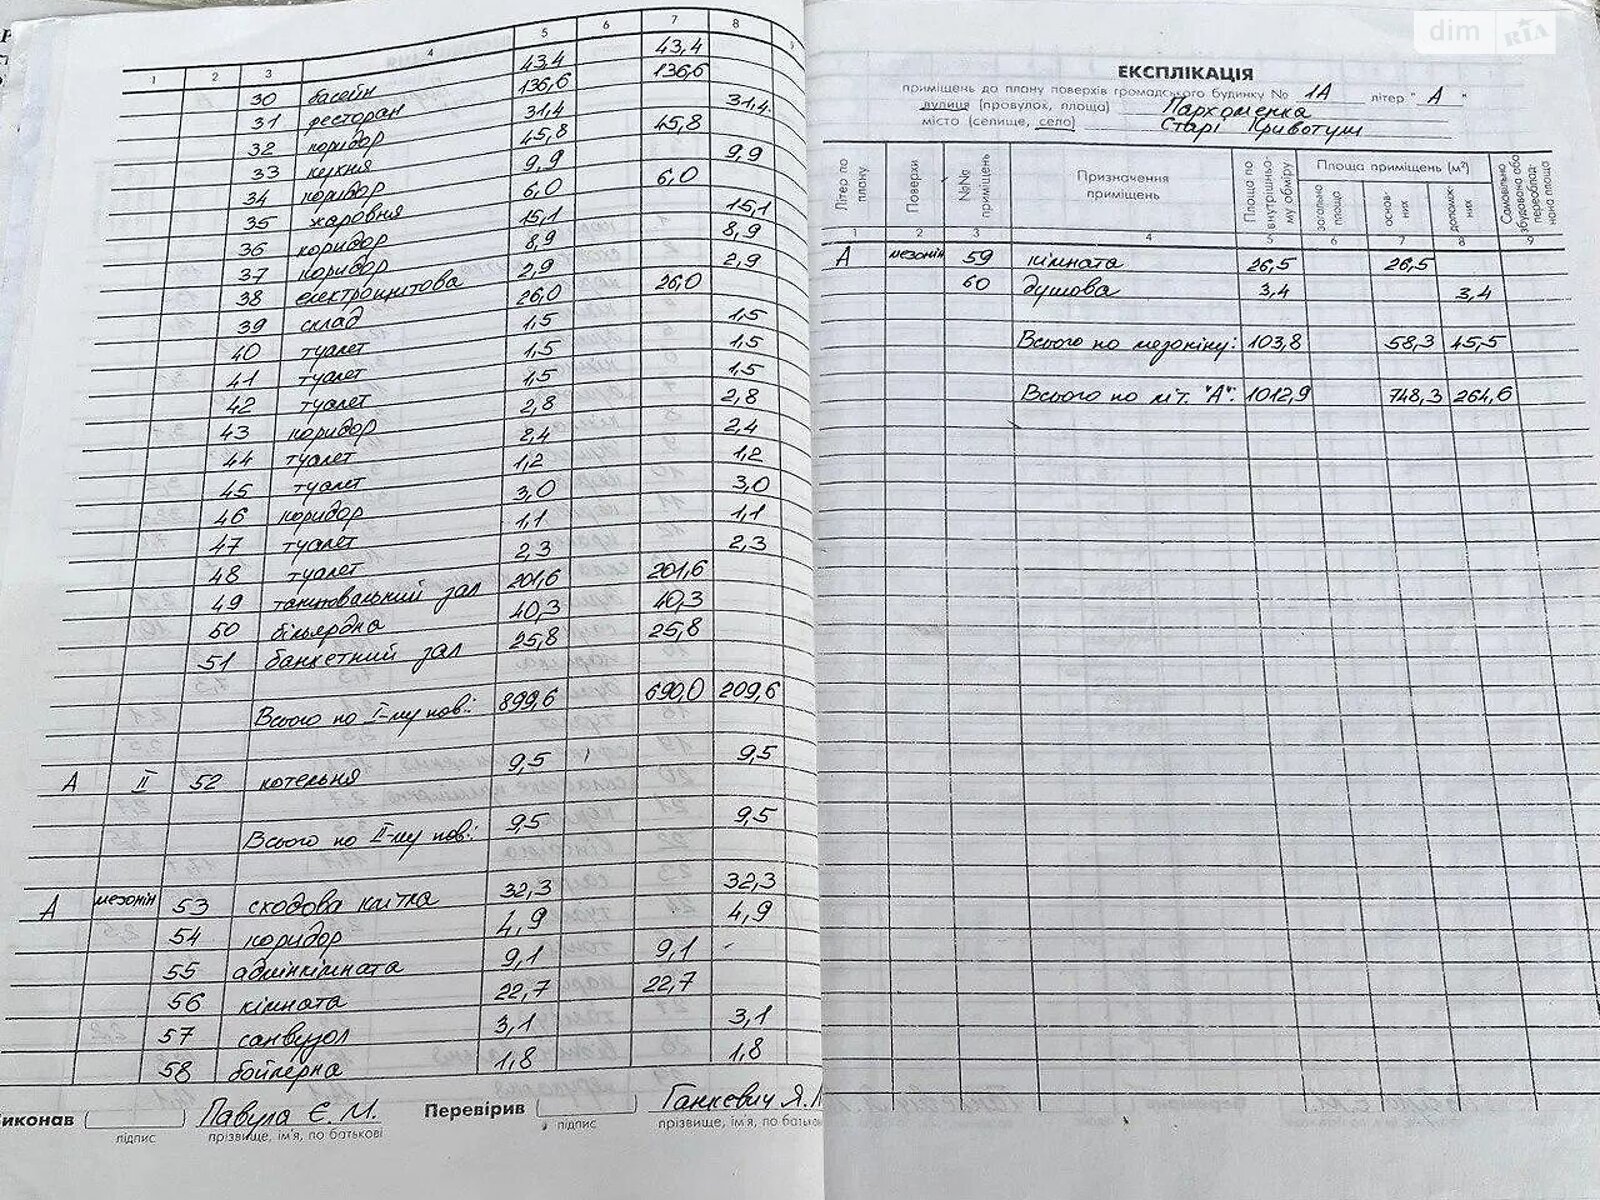 1 2 3 4 5 6 7 8 9
30 басейн 43,4 43,4
31 ресторан 136,6 136,6
32 коридор 31,4 31,4
33 кухня 45,8 45,8
34 коридор 9,9 9,9
35 жаровня 6,0 6,0
36 коридор 15,1 15,1
37 коридор 8,9 8,9
38 електрощитова 2,9 2,9
39 склад 26,0 26,0
40 туалет 1,5 1,5
41 туалет 1,5 1,5
42 туалет 1,5 1,5
43 коридор 2,8 2,8
44 туалет 2,4 2,4
45 туалет 1,2 1,2
46 коридор 3,0 3,0
47 туалет 1,1 1,1
48 туалет 2,3 2,3
49 танцювальний зал 201,6 201,6
50 більярдна 40,3 40,3
51 банкетний зал 25,8 25,8
Всього по I-му пов.: 899,6 690,0 209,6
А II 52 котельня 9,5 9,5
Всього по II-му пов.: 9,5 9,5
А мезонін 53 сходова клітка 32,3 32,3
54 коридор 4,9 4,9
55 адмінкімната 9,1 9,1 -
56 кімната 22,7 22,7
57 санвузол 3,1 3,1
58 бойлерна 1,8 1,8
иконав Павула Є.М. Перевірив Ганкевич Я.
підпис прізвище, ім'я, по батькові підпис прізвище, ім'я, по батько
dim RIA
ЕКСПЛІКАЦІЯ
приміщень до плану поверхів громадського будинку № 1А літер "А"
вулиця (провулок, площа) Пархоменка
місто (селище, село) Старі Кривотули
Літер по плану
Поверхи
№№ приміщень
Призначення приміщень
Площа по внутрішньому обміру
Площа приміщень (м²)
загальна площа
основних
допоміжних
Самовільно збудована або переобладнана площа
1 2 3 4 5 6 7 8 9
А мезонін 59 кімната 26,5 26,5
60 душова 3,4 3,4
Всього по мезоніну: 103,8 58,3 45,5
Всього по літ. "А": 1012,9 748,3 264,6